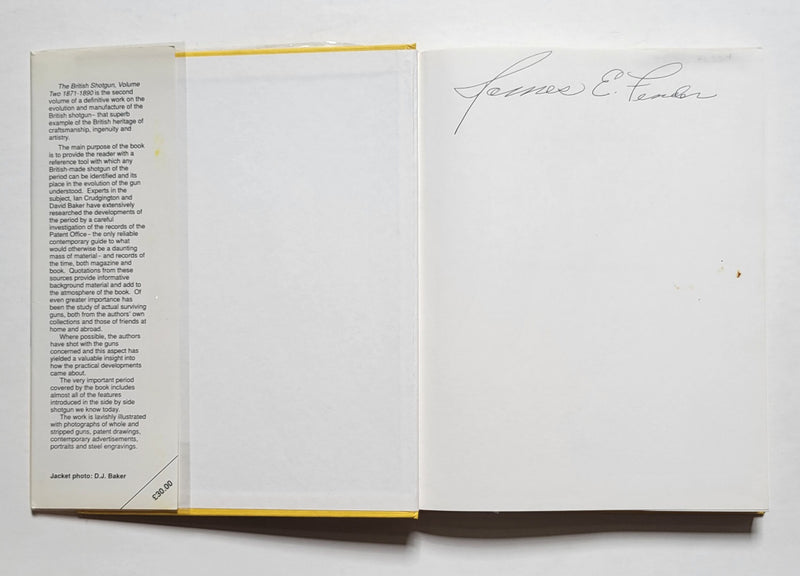 The British Shotgun, Volume
Two 1871-1890 is the second
volume of a definitive work on the
evolution and manufacture of the
British shotgun - that superb
example of the British heritage of
craftsmanship, ingenuity and
artistry.
The main purpose of the book
is to provide the reader with a
reference tool with which any
British-made shotgun of the
period can be identified and its
place in the evolution of the gun
understood. Experts in the
subject, Ian Crudgington and
David Baker have extensively
researched the developments of
the period by a careful
investigation of the records of the
Patent Office - the only reliable
contemporary guide to what
would otherwise be a daunting
mass of material - and records of
the time, both magazine and
book. Quotations from these
sources provide informative
background material and add to
the atmosphere of the book. Of
even greater importance has
been the study of actual surviving
guns, both from the authors' own
collections and those of friends at
home and abroad.
Where possible, the authors
have shot with the guns
concerned and this aspect has
yielded a valuable insight into
how the practical developments
came about.
The very important period
covered by the book includes
almost all of the features
introduced in the side by side
shotgun we know today.
The work is lavishly illustrated
with photographs of whole and
stripped guns, patent drawings,
contemporary advertisements,
portraits and steel engravings.
Jacket photo: D.J. Baker
£30.00
James E. Fender